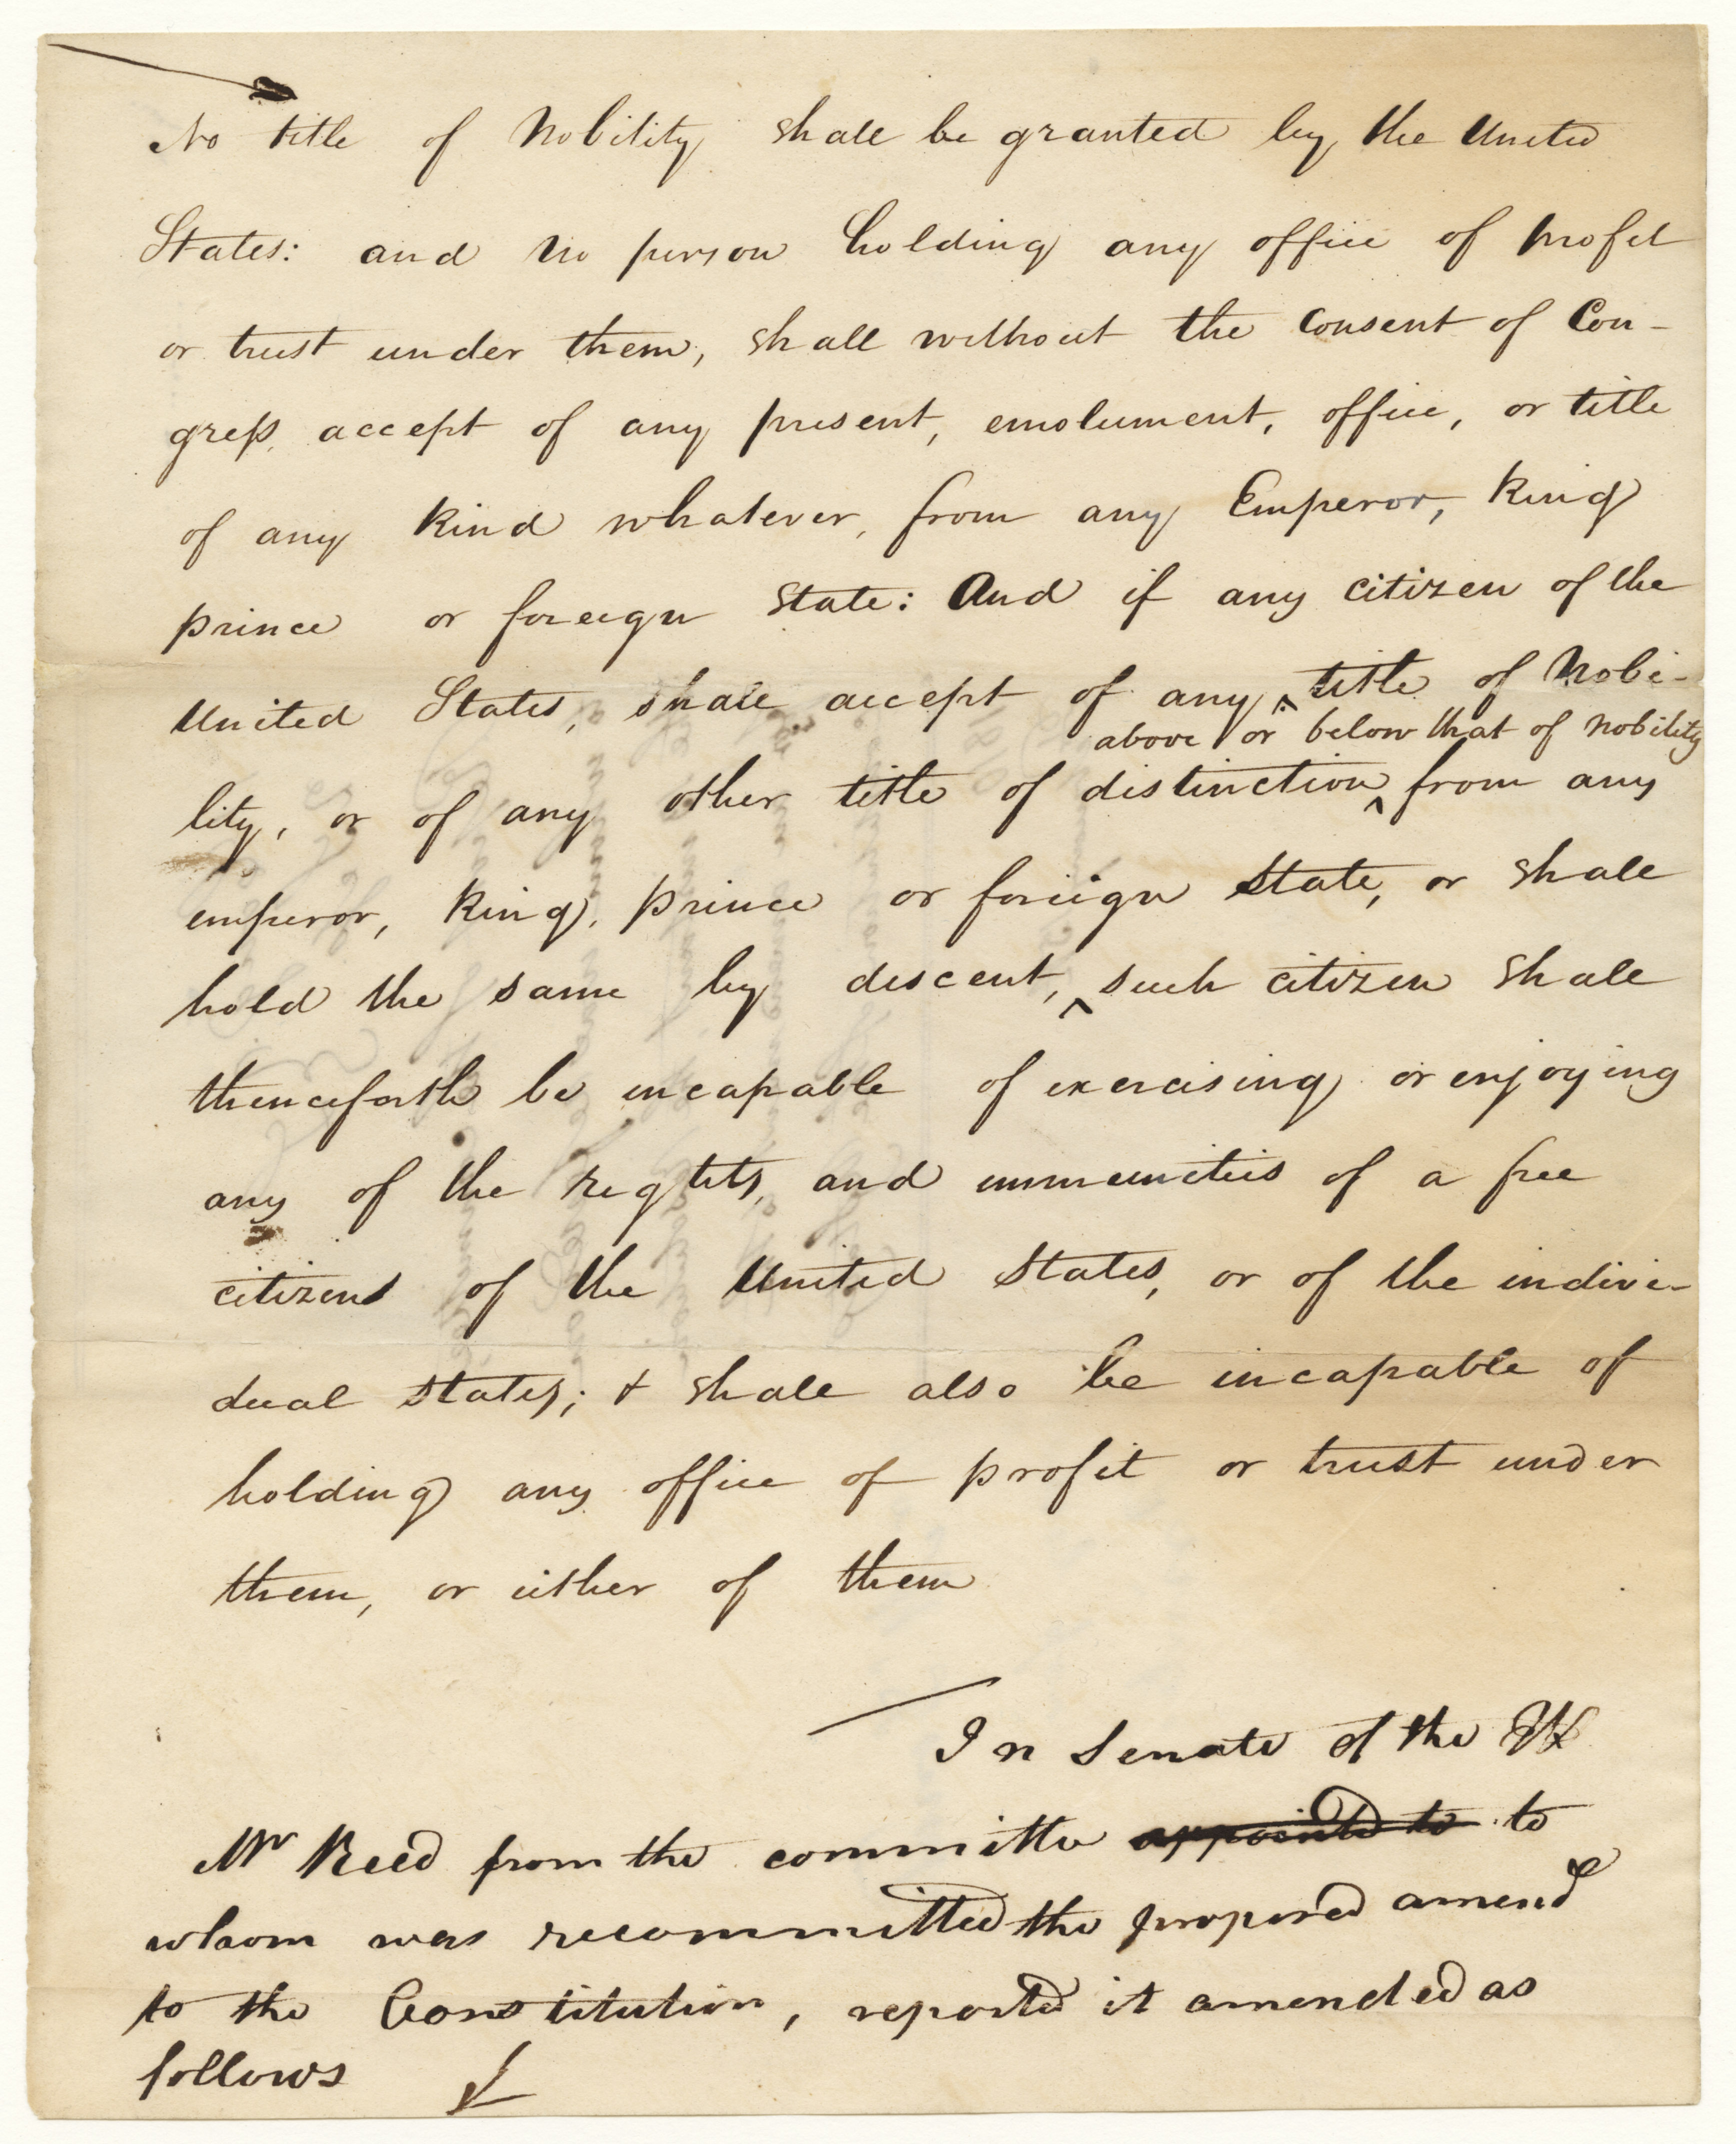 No title of Nobility shall be granted by the United
States: and no person holding any office of profit
or trust under them, shall without the consent of Con-
gress, accept of any present, emolument, office, or title
of any kind whatever, from any Emperor, King
prince or foreign State: And if any citizen of the
United States, shall accept of any ^ title of Nobi-
above or below that of nobility
lity, or of any other title of distinction ^ from any
emperor, King, prince or foreign State, or shall
hold the same by descent, ^ such citizen shall
thenceforth be incapable of exercising or enjoying
any of the rights, and immunities of a free
citizens of the United States, or of the indivi-
dual States; & shall also be incapable of
holding any office of profit or trust under
them, or either of them
In Senate of the
Mr Reed from the committee appointed to to
whom was recommitted the proposed amend
to the Constitution, reported it amended as
follows